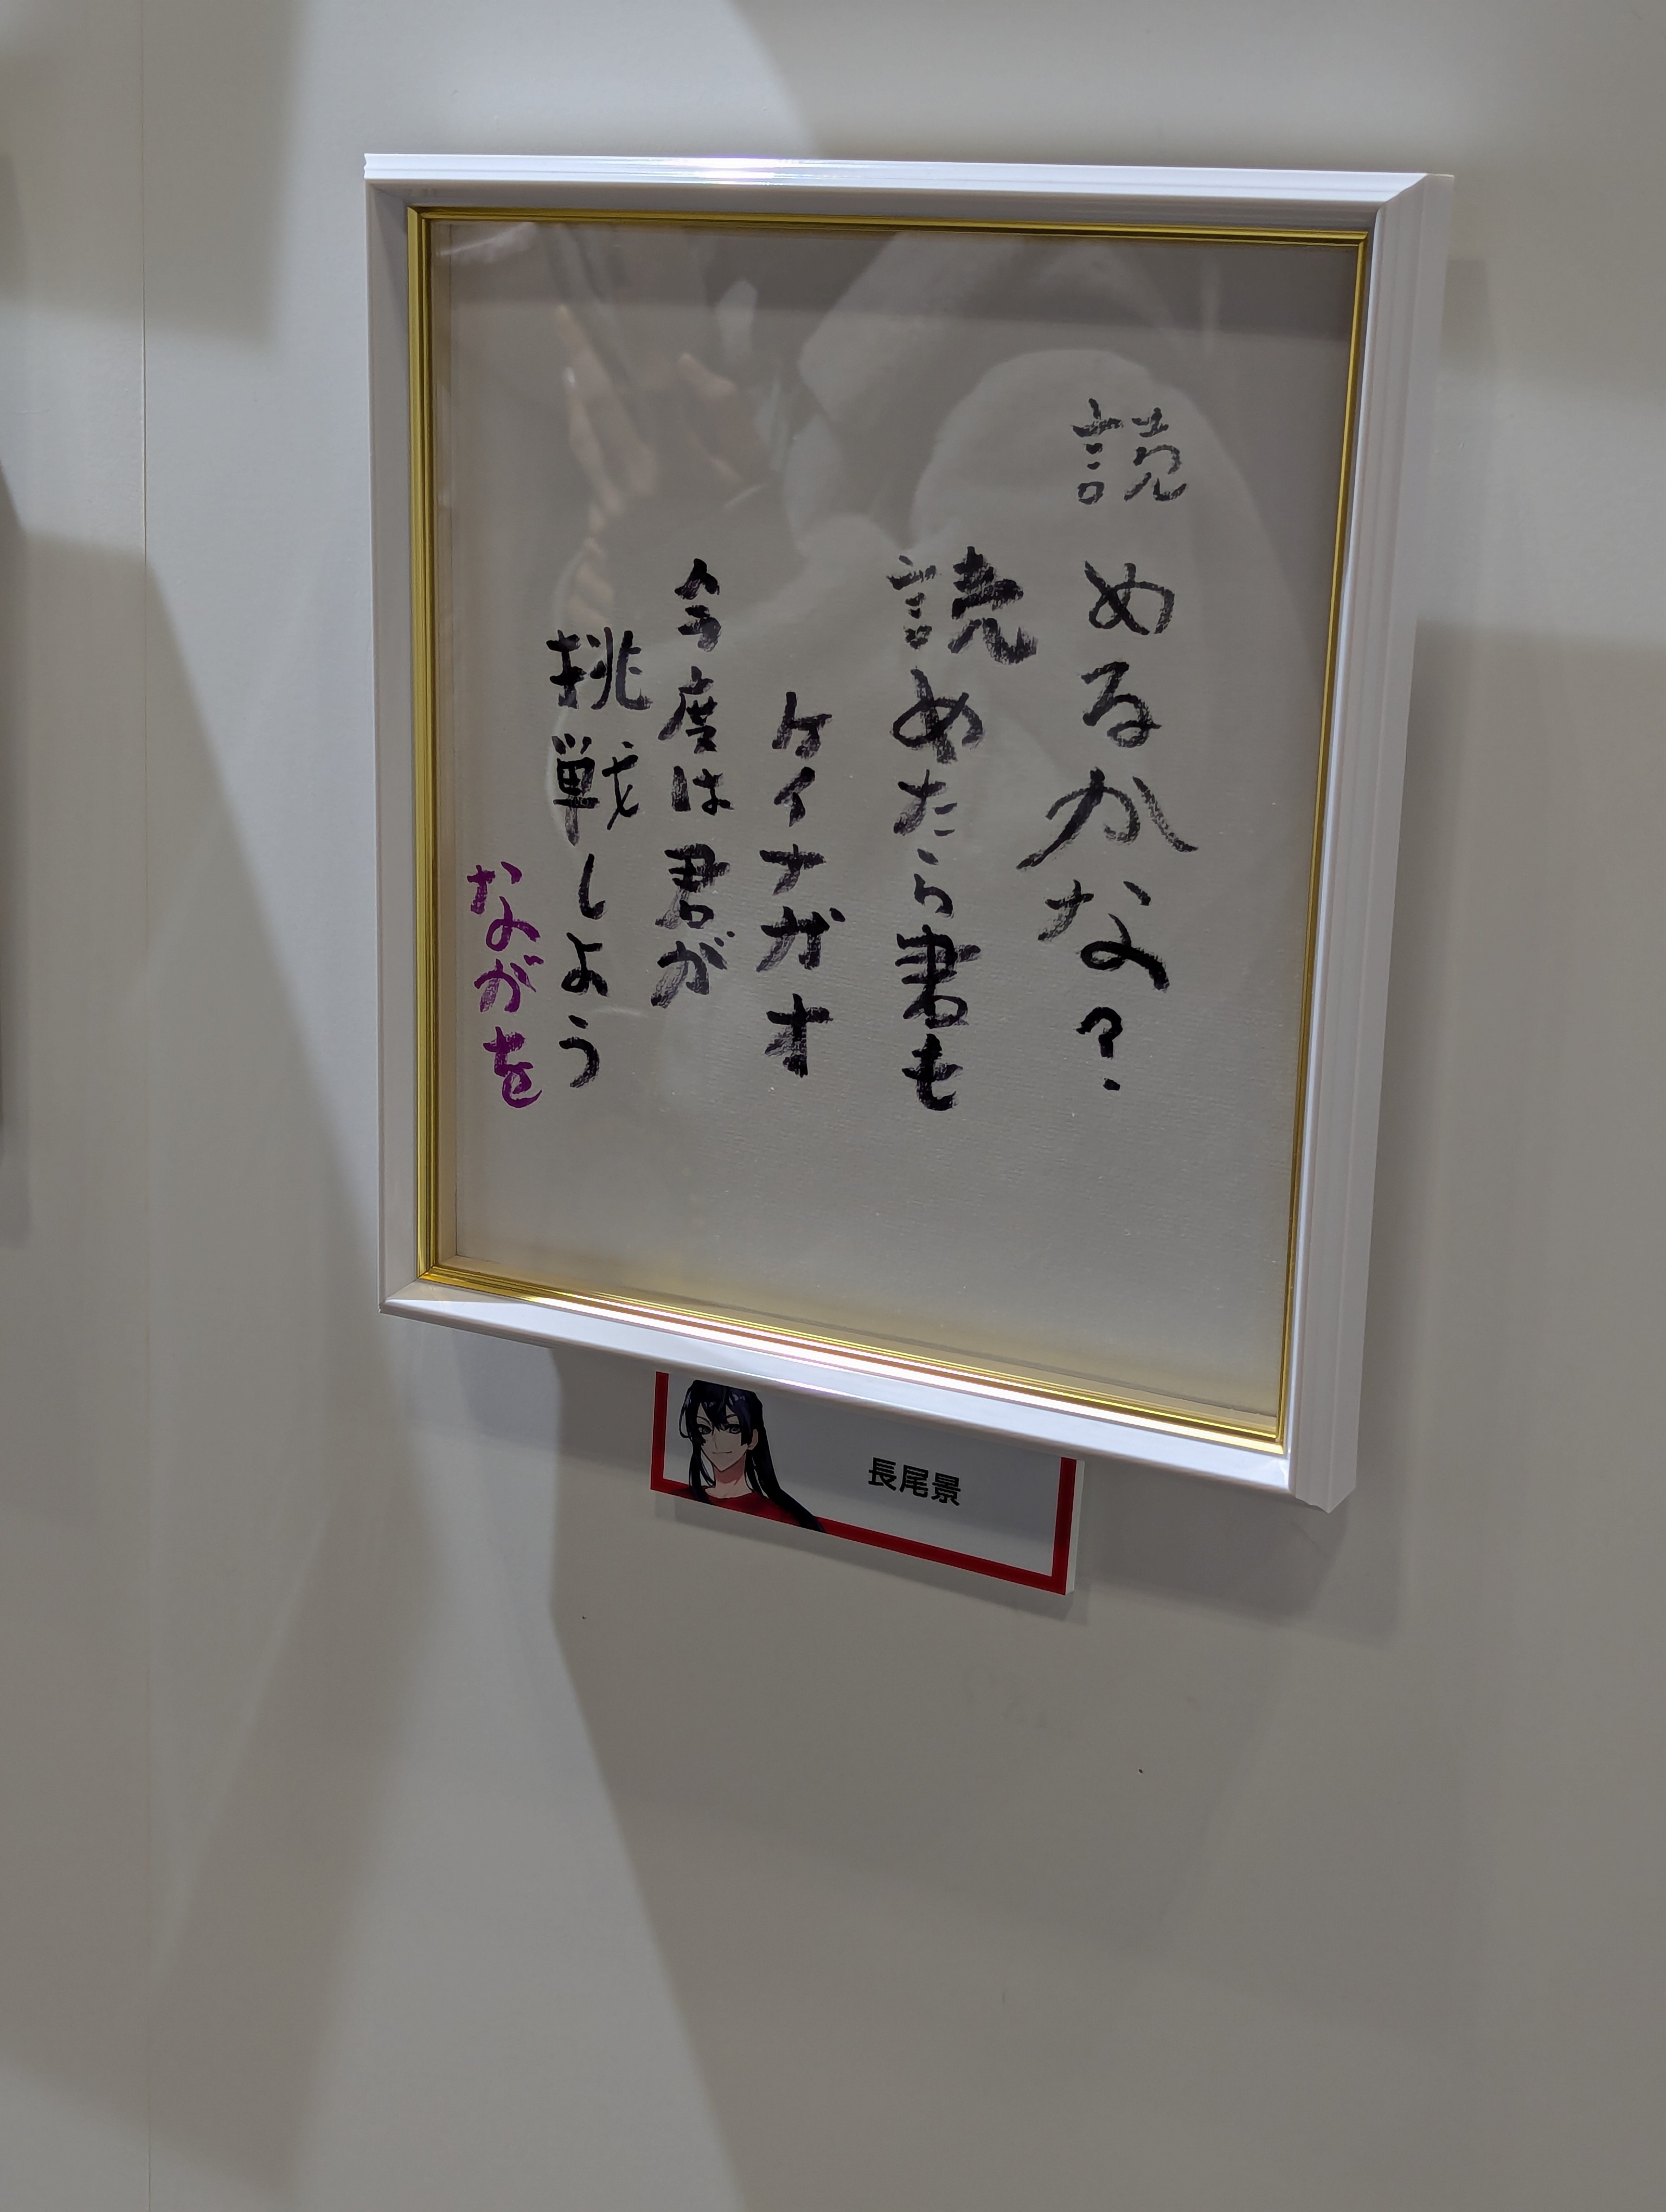 読めるかな?
読めたら君も
ケイナガオ
今度は君が
挑戦しよう
ながを
長尾景